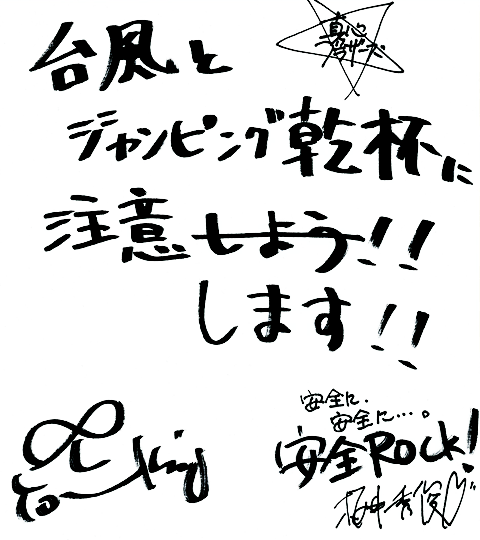 真心
ブラザーズ
台風と
ジャンピング乾杯に
注意しよう!!
します!!
安全に、
安全に…。
安全ROCK!